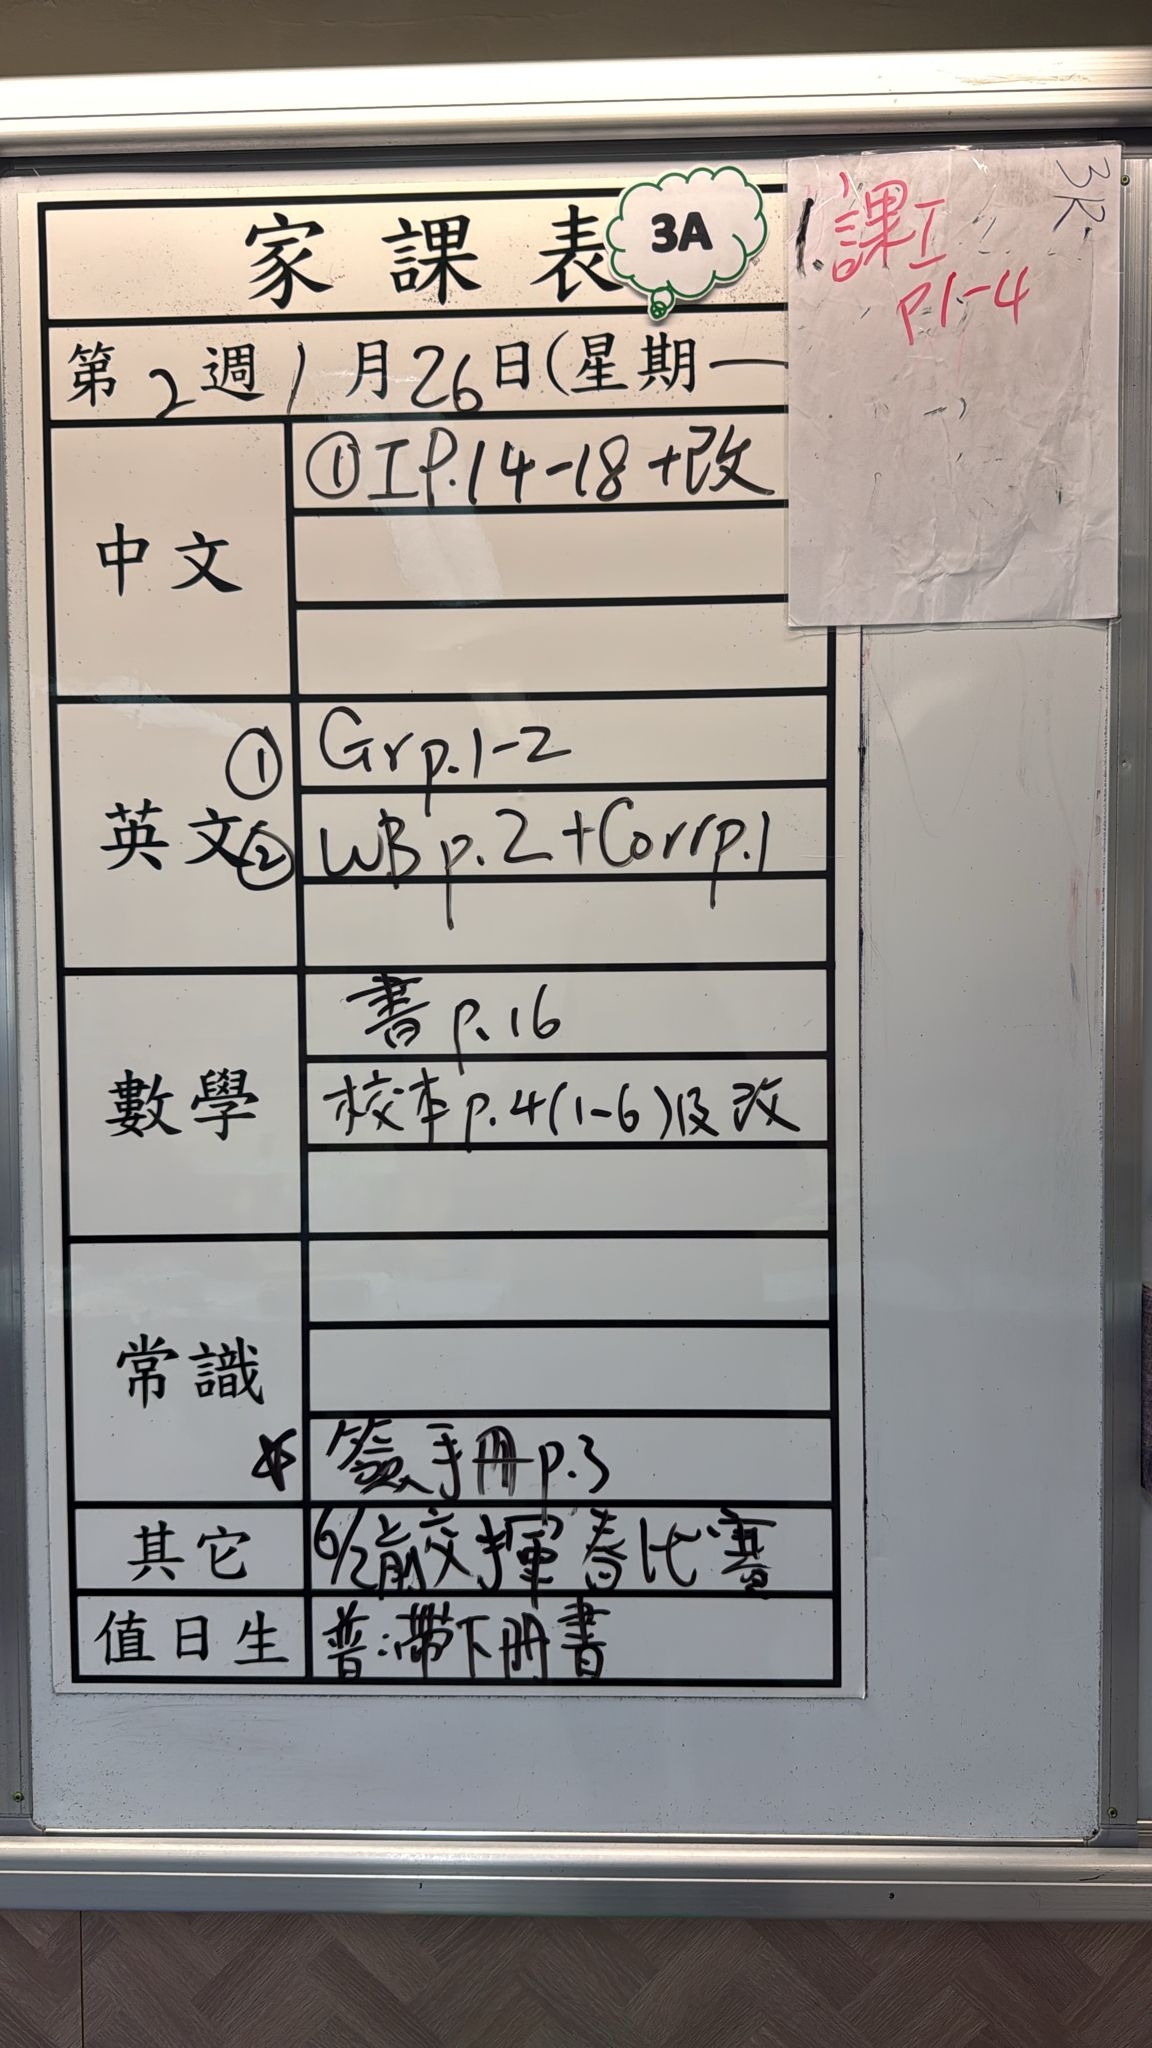 家課表
3A
第2週1月26日(星期一
中文
①工P.14-18+改
英文
① Gr p.1-2
② WB p.2+Corr p.1
數學
書 p.16
校本p.4(1-6)及改
常識
☆ 簽手冊p.3
其它
6/2前交揮春比賽
值日生
普:帶下冊書
3R
1.課工
P1-4